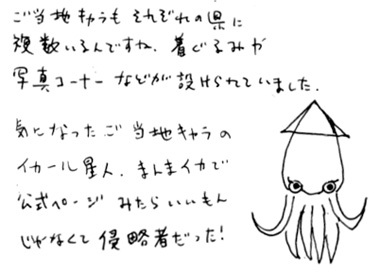 ご当地キャラも それぞれの県に
複数いるんですね。着ぐるみや
写真コーナーなどが設けられていました。
気になったご当地キャラの
イカール星人。まんまイカで
公式ページ みたらいいもん
じゃなくて 侵略者だった!